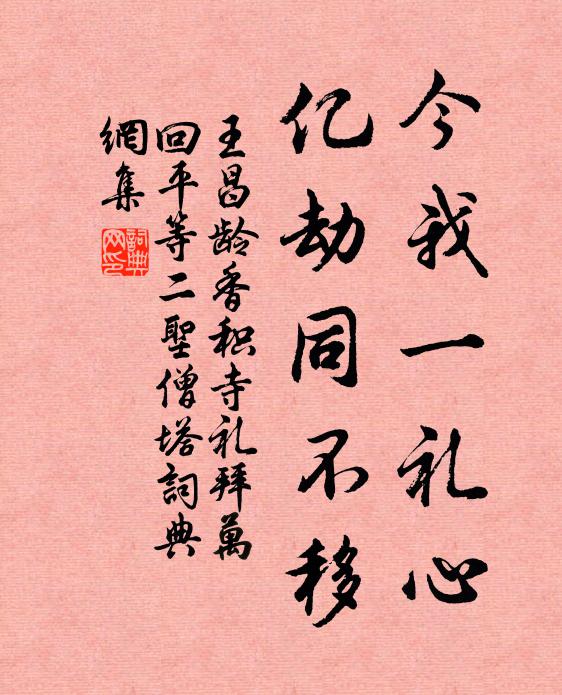 今我一礼心
亿劫同不移
王昌龄香积寺礼拜萬
回平等二聖僧塔詞典
網集
詞典网印